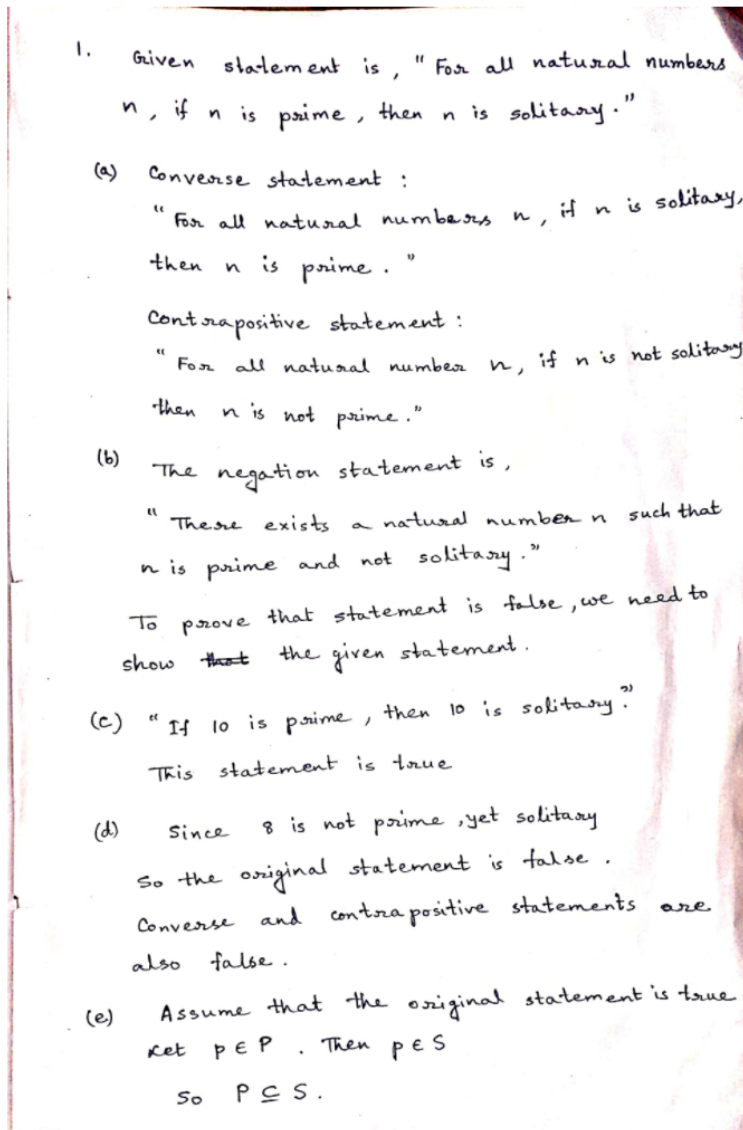 1. Given statement is, "For all natural numbers
n, if n is prime, then n is solitary."
(a) Converse statement :
"For all natural numbers n, if n is solitary,
then n is prime."
Contrapositive statement :
"For all natural number n, if n is not solitary
then n is not prime."
(b) The negation statement is,
"There exists a natural number n such that
n is prime and not solitary."
To prove that statement is false, we need to
show that the given statement.
(c) "If 10 is prime, then 10 is solitary."
This statement is true
(d) Since 8 is not prime, yet solitary
So the original statement is false.
Converse and contrapositive statements are
also false.
(e) Assume that the original statement is true
Let p ∈ P. Then p ∈ S
So P ⊆ S.